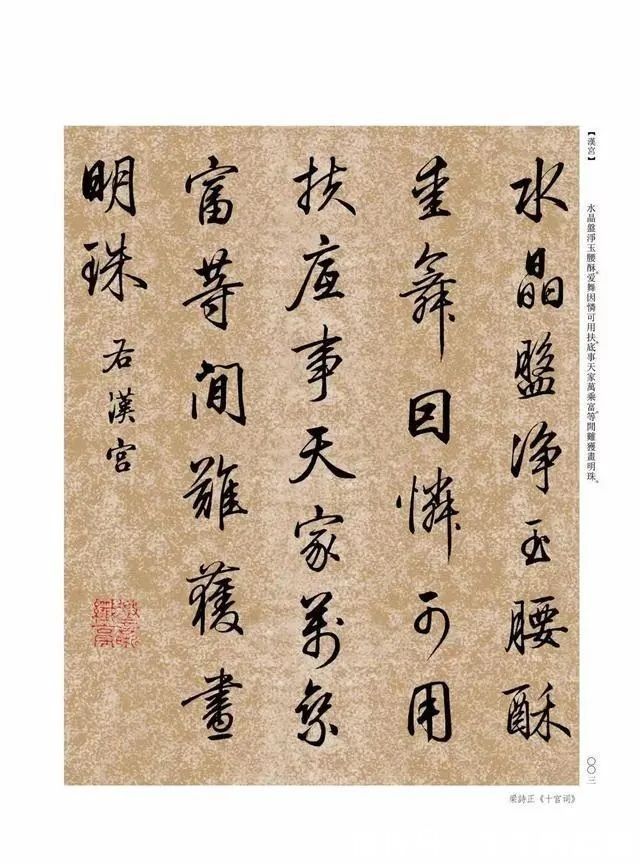 【漢宮】
水晶盤淨玉腰酥。爱舞因憐可用扶。底事天家萬乘富。等閒難獲畫明珠。
〇〇三
水晶盤净玉腰酥
愛舞因憐可用
扶底事天家萬乘
富等閒難獲畫
明珠
右漢宮
梁詩正《十官司》